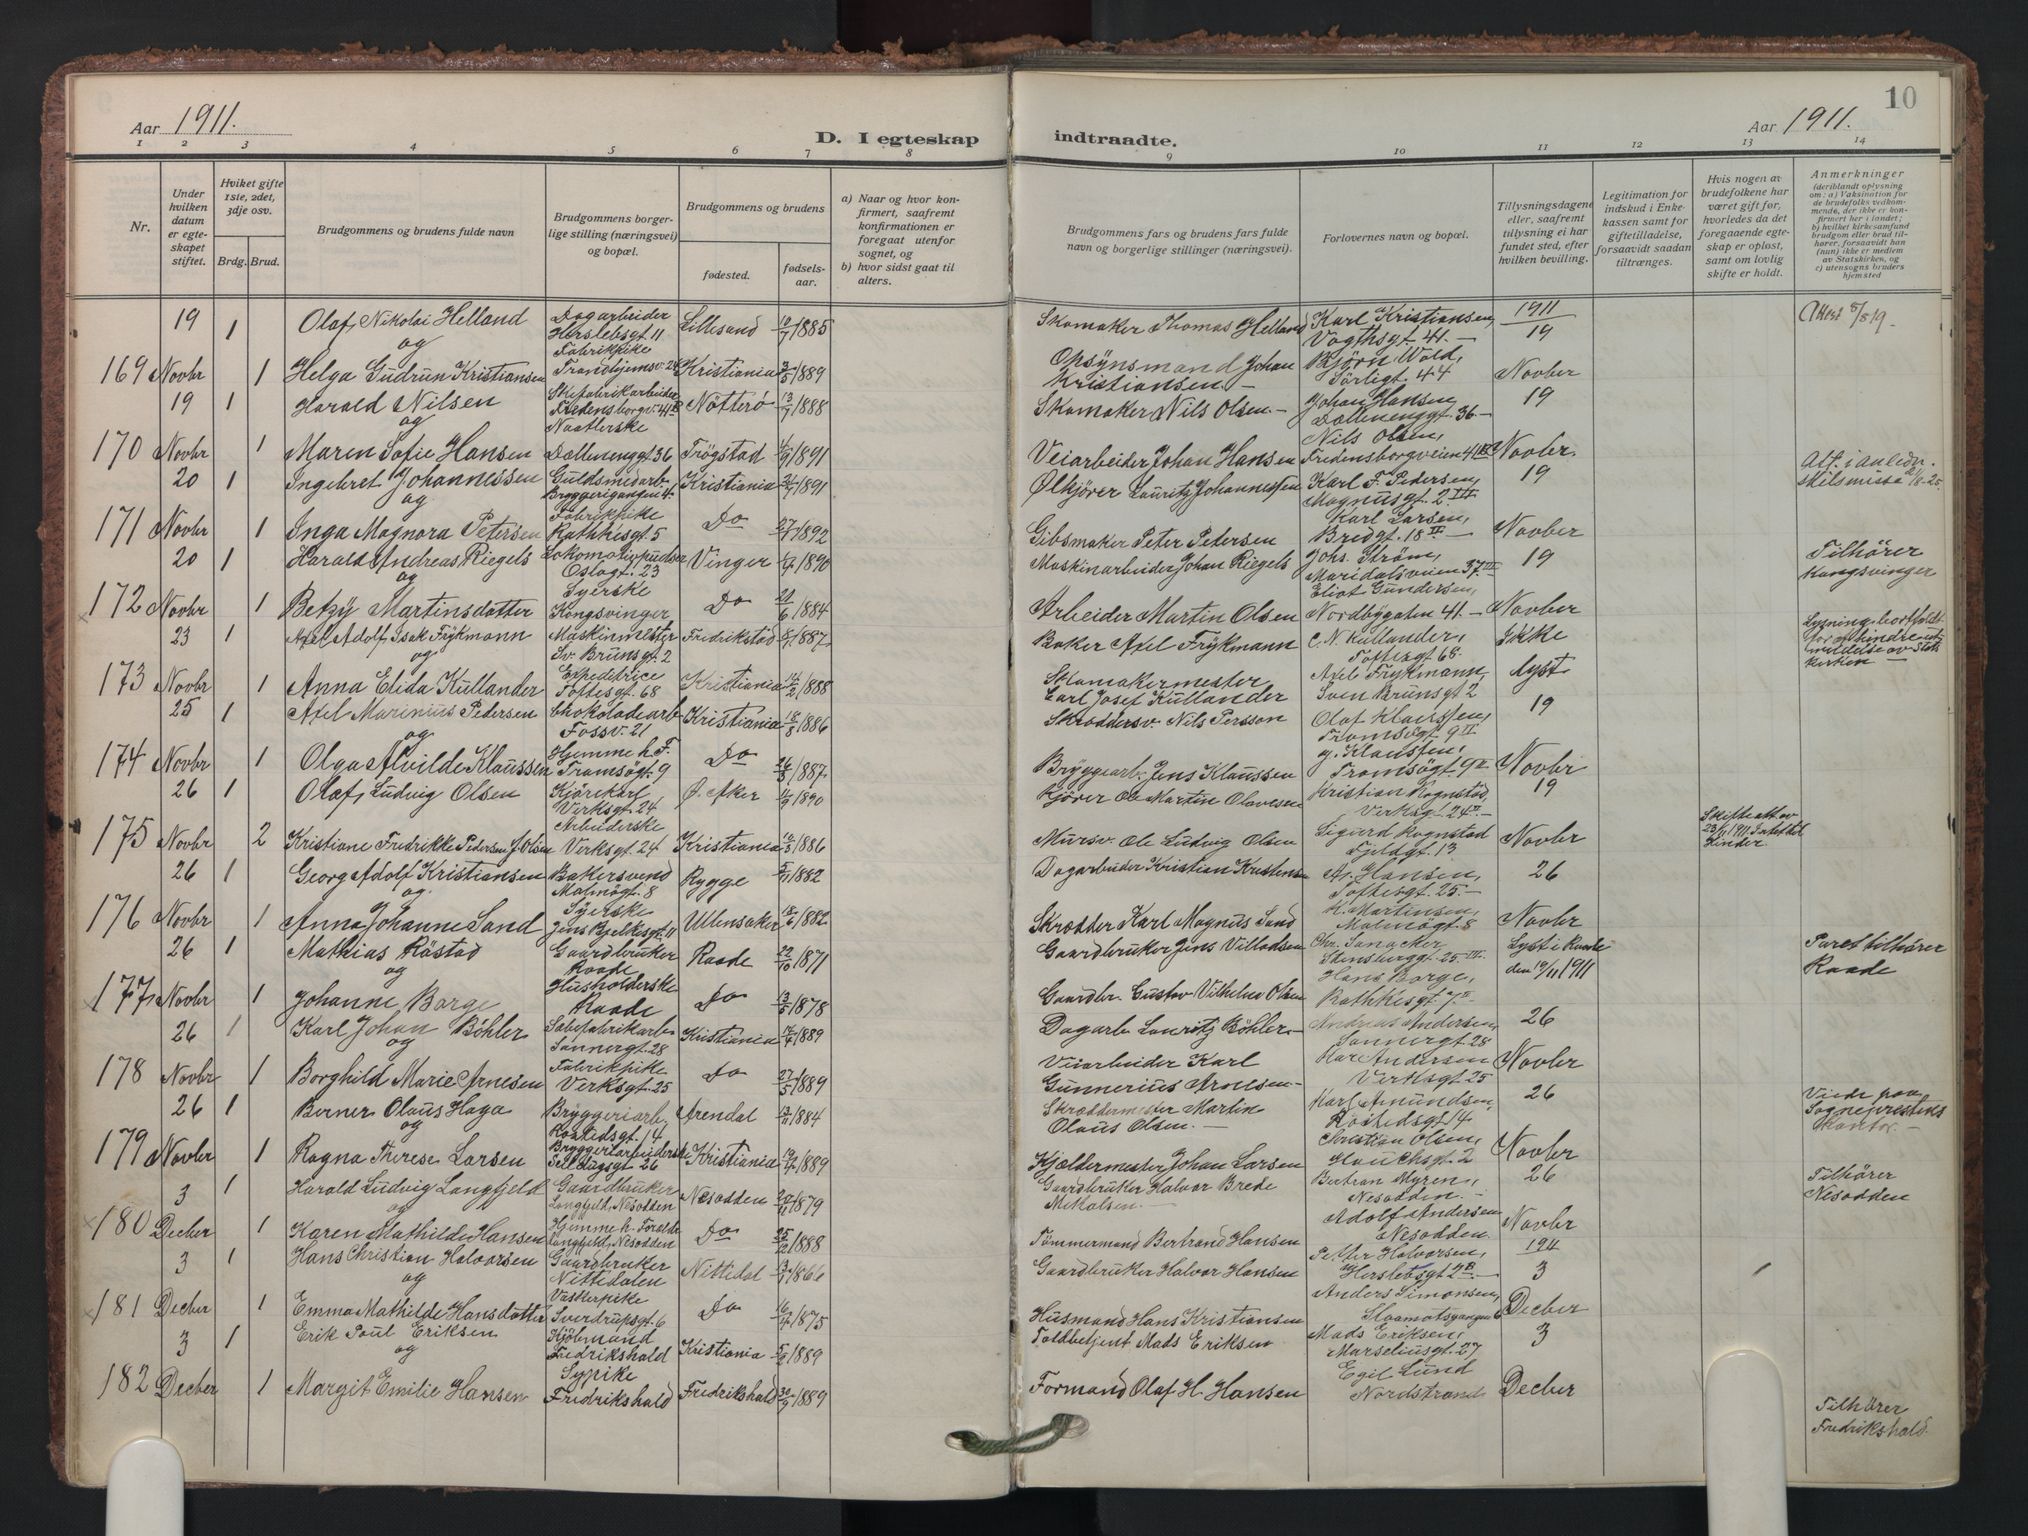 Aar 1911.
D. I egteskap
indtraadte.
Aar 1911.
10
1 2 3 4 5 6 7 8 9 10 11 12 13 14
Nr.
Under hvilken datum er egteskapet stiftet.
Hvilket gifte 1ste, 2det, 3dje osv.
Brdg. Brud.
Brudgommens og brudens fulde navn
Brudgommens borgerlige stilling (næringsvei) og bopæl.
Brudgommens og brudens
fødested.
fødselsaar.
a) Naar og hvor konfirmert, saafremt konfirmationen er foregaat utenfor sognet, og
b) hvor sidst gaat til alters.
Brudgommens fars og brudens fars fulde navn og borgerlige stillinger (næringsvei).
Forlovernes navn og bopæl.
Tillysningsdagene eller, saafremt tillysning ei har fundet sted, efter hvilken bevilling.
Legitimation for indskud i Enkekassen samt for giftetilladelse, forsaavidt saadan tiltrænges.
Hvis nogen av brudefolkene har været gift før, hvorledes da det foregaaende egteskap er opløst, samt om lovlig skifte er holdt.
Anmerkninger
(deriblandt oplysning om: a) Vaksination for de brudefolks vedkommende, der ikke er konfirmert her i landet; b) hvilket kirkesamfund brudgom eller brud tilhører, forsaavidt han (hun) ikke er medlem av Statskirken, og c) utensogns bruders hjemsted
19 1 Olaf Nikolai Helland Dagarbeider Herslebsgt 11 Lillesand 10/7 1885 Skomaker Thomas Helland Karl Kristiansen, Vogtsgt. 41. 1911 19 Attest 5/8 19.
og
169 Novbr 1 Helga Gudrun Kristiansen Fabrikpike Trondhjemsv. 24 Kristiania 3/5 1889 Opsynsmand Johan Kristiansen. Bjørn Wold, Sörligt. 44 Novber
19 1 Harald Nilsen Skifabrikarbeider Fredensborgv. 41B Nötterö 13/7 1888 Skomaker Nils Olsen Johan Hansen Dællenenggt. 36 19
og
170 Novbr 1 Maren Sofie Hansen Dællenenggt 36 Trögstad 1891 Veiarbeider Johan Hansen Nils Olsen, Fredensborgveien 41 Novbr.
20 1 Ingebret Johannessen Guldsmedarb. Bryggerigangen 4 Kristiania 1891 Ølkjörer Lauritz Johannessen Karl F. Pedersen, Magnusgt. 2 III 19 Att. i anledn. skilsmisse
og
171 Novbr 1 Inga Magnora Petersen Fabrikpike Rathkesgt. 5 Do 27/1 1892 Gibsmaker Peter Petersen Karl Larsen, Bredgt. 18 II Novber
20 1 Harald Andreas Riegels Lokomotivpudser Oslogt. 23 Vinger 1890 Maskinarbeider Johan Riegels Johs. Ström, Maridalsveien 37 III 19 Tilhörer Kongsvinger
og
172 Novbr 1 Betzy Martinsdatter Syerske Kongsvinger Do 21/6 1884 Arbeider Martin Olsen Eliot Gundersen, Nordbygaten 41. Novber
23 1 Axel Adolf Isak Frykmann Maskinmester Sv. Brunsgt. 2 Fredrikstad 1887 Baker Axel Frykmann C. N. Kullander, Toftesgt 68. Ikke Lysning bortfaldt
og
173 Novbr 1 Anna Elida Kullander Expeditrice Toftesgt. 68 Kristiania 14/2 1888 Skomakermester Carl Josef Kullander Axel Frykmann, Sven Brunsgt 2 lyst kirken
25 1 Axel Marinius Pedersen Chokoladearb Fossv. 21 Kristiania 18/8 1886 Skrædersv. Nils Persson Olaf Klaussen, Tromsögt 9 II 19
og
174 Novbr 1 Olga Alvilde Klaussen Hjemme h. F. Tromsögt. 9 Do 26/8 1887. Bryggearb. Jens Klaussen Klaussen, Tromsögt 9 II Novbr
26 1 Olaf Ludvig Olsen Kjörekarl, Verksgt. 24 Ø. Aker 4/9 1890 Kjörer Ole Martin Olavesen Kristian Rognstad, Verksgt 24 II 19
175 Novbr 2 Kristiane Fredrikke Pedersen f. Olsen Arbeiderske Verksgt. 24 Kristiania 10/3 1886 Mursv. Ole Ludvig Olsen Sigurd Rognstad Fjeldgt. 13 Novbr Skifteatt. av 23/11 1911. Intet bo. kinder
26 1 Georg Adolf Kristiansen Bakersvend Malmögt. 8 Rygge 5/11 1882 Dagarbeider Kristian Kristensen A. Hansen, Toftesgt. 25. 26
og
176 Novbr 1 Anna Johanne Sand Syerske Jens Bjelkesgt. 11 Ullensaker 18/6 1882 Skrædder Karl Magnus Sand K. Martinsen, Malmögt. 8 Novbr
26 1 Mathias Röstad Gaardbruker Raade Raade 22/10 1871 Gaardbruker Jens Villadsen Chr. Sanacker, Stensberggt. 25. III Lyst i Raade den 19/11 1911 Paret tilhörer Raade
og
177 Novbr 1 Johanne Borge Husholderske Raade Do 13/5 1878 Gaardbr. Gustav Vilhelm Olsen Hans Borge, Rathkesgt 7 II
26 1 Karl Johan Böhler Sæbefabrikarb. Sannergt. 28 Kristiania 1889 Dagarb. Lauritz Böhler Andreas Andersen, Sannergt. 28 26
og
178 Novbr 1 Borghild Marie Arnesen Fabrikpike Verksgt. 25 Do 27/5 1889 Veiarbeider Karl Gunnerius Arnesen Andersen Verksgt 25 Novbr
26 1 Berner Olaus Haga Bryggeriarb. Rostedsgt. 14 Arendal 1884 Skræddermester Martin Olaus Olsen. Karl Amundsen, Rostedsgt 14 26 Viede paa Sogneprestens kontor.
og
179 Novbr 1 Ragna Therese Larsen Bryggeriarbeiderske Seilduksgt 26 Kristiania 19/4 1889 Kjældermester Johan Larsen Christian Olsen, Hauchsgt. 2 Novbr
3 1 Harald Ludvig Langfjeld Gaardbruker Langfjeld, Nesodden Nesodden 20/11 1879 Gaardbruker Halvor Brede Mikalsen. Bertran Myren, Nesodden. 26 Tilhörer Nesodden
og
180 Decber 1 Karen Mathilde Hansen Hjemme h. Foreldr Langfjeld, Nesodden Do 25/2 1888 Tömmermand Bertrand Hansen Adolf Andersen Nesodden Novbr
3 1 Hans Christian Halvorsen Gaardbruker Nittedalen Nittedal 1866 Gaardbruker Halvor Hansen Petter Halvorsen, Herslebsgt 2B. 1911 3
og
181 Decber 1 Emma Mathilde Hansdatter Vaskerpike Sverdrupsgt. 6 Do 16/7 1875 Husmand Hans Kristiansen Anders Simonsen, Slaamotgangen 6 Decber
3 1 Erik Poul Eriksen Kjöbmand Fredrikshald Kristiania 5/2 1889 Toldbetjent Mads Eriksen Mads Eriksen, Marseliusgt. 27 3
og
182 Decber 1 Margit Emilie Hansen Sypike Fredrikshald Fredrikshald 30/9 1889 Formand Olaf H. Hansen Egil Lund Nordstrand Decber Tilhörer Fredrikshald.